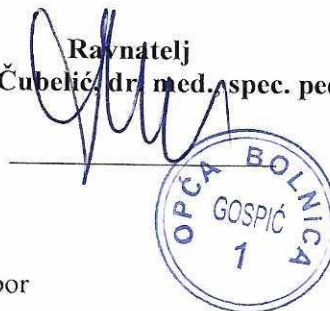 Ravnatelj
Čubelić, dr. med., spec. ped
OPĆA BOLNICA
GOSPIĆ
1